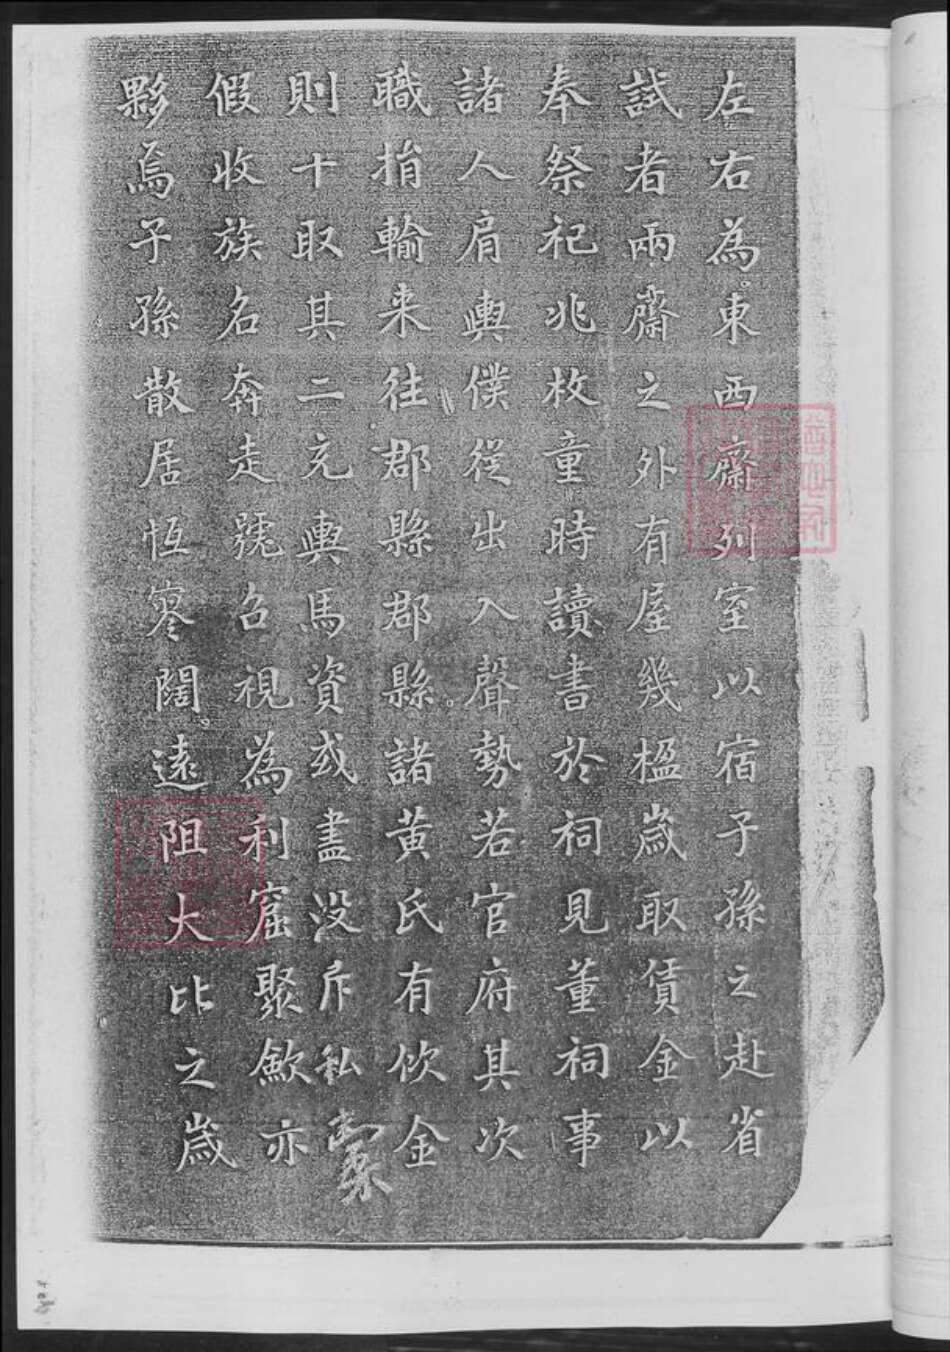 左右為東西齋列室以宿子孫之赴省
試者兩齋之外有屋幾楹歲取賃金以
奉祭祀兆枚童時讀書於祠見董祠事
諸人肩輿僕從出入聲勢若官府其次
職捐輸来往郡縣郡縣諸黄氏有飲金
則十取其二充輿馬資或盡没斥私槖
假收族名奔走號召視為利窟聚歛亦
夥焉子孫散居恆寥闊遠阻大比之歲